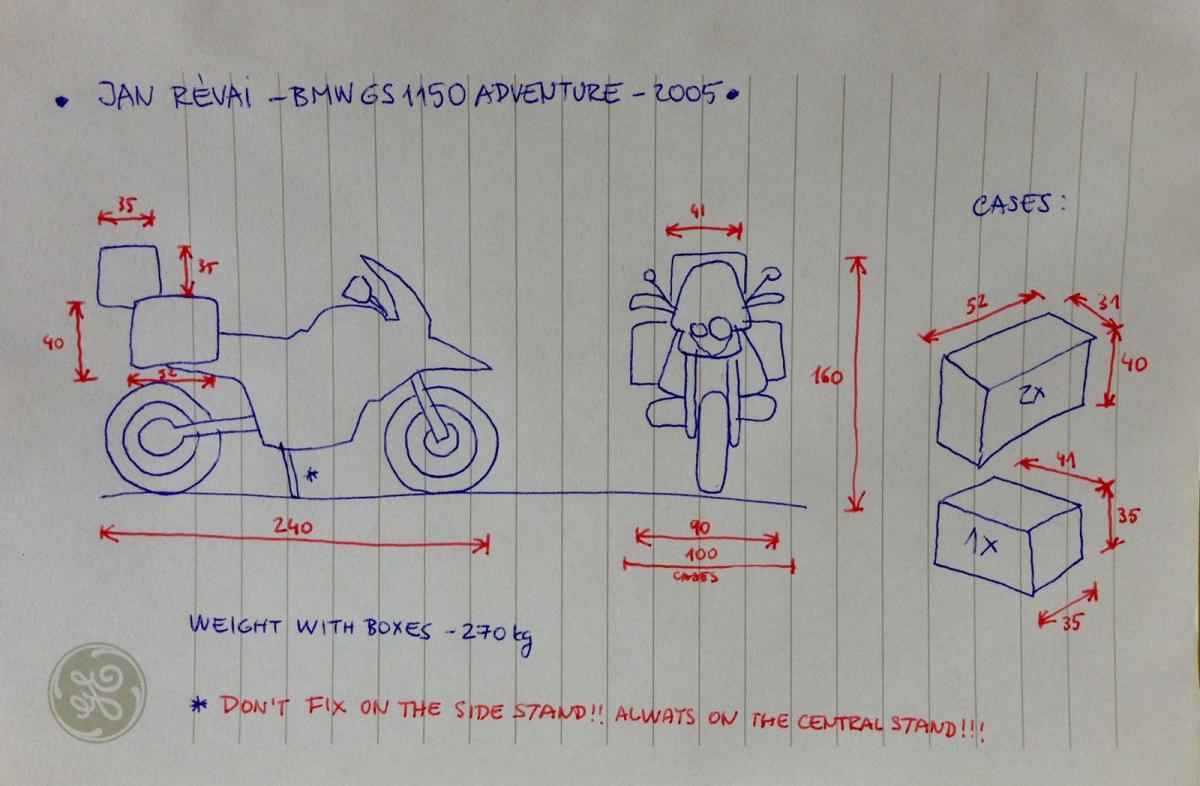 • JAN RÉVAI - BMW GS 1150 ADVENTURE - 2005 •
CASES:
35
35
40
52
240
*
41
160
90
100
CASES
52
31
40
2x
41
35
1x
35
WEIGHT WITH BOXES - 270 kg
* DON'T FIX ON THE SIDE STAND!! ALWAYS ON THE CENTRAL STAND!!!
GE